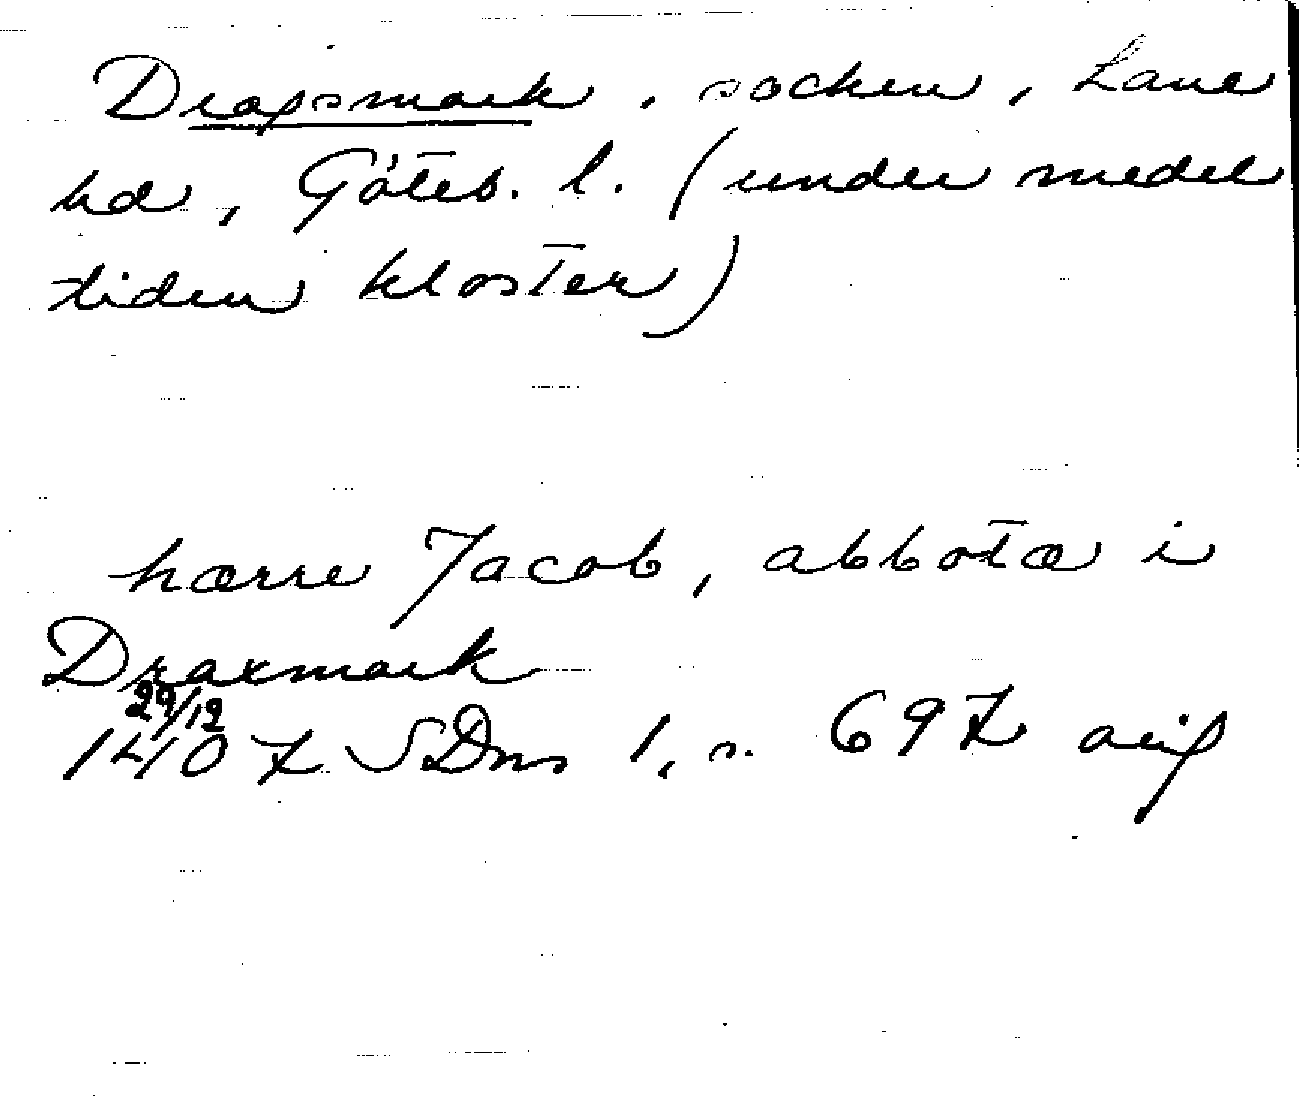 Dragsmark, socken, Lane
hd, Göteb. l. (under medel
tiden kloster)
hærre Jacob, abbotæ i
Draxmark
29/12
1407 SDns 1, s. 697 avs